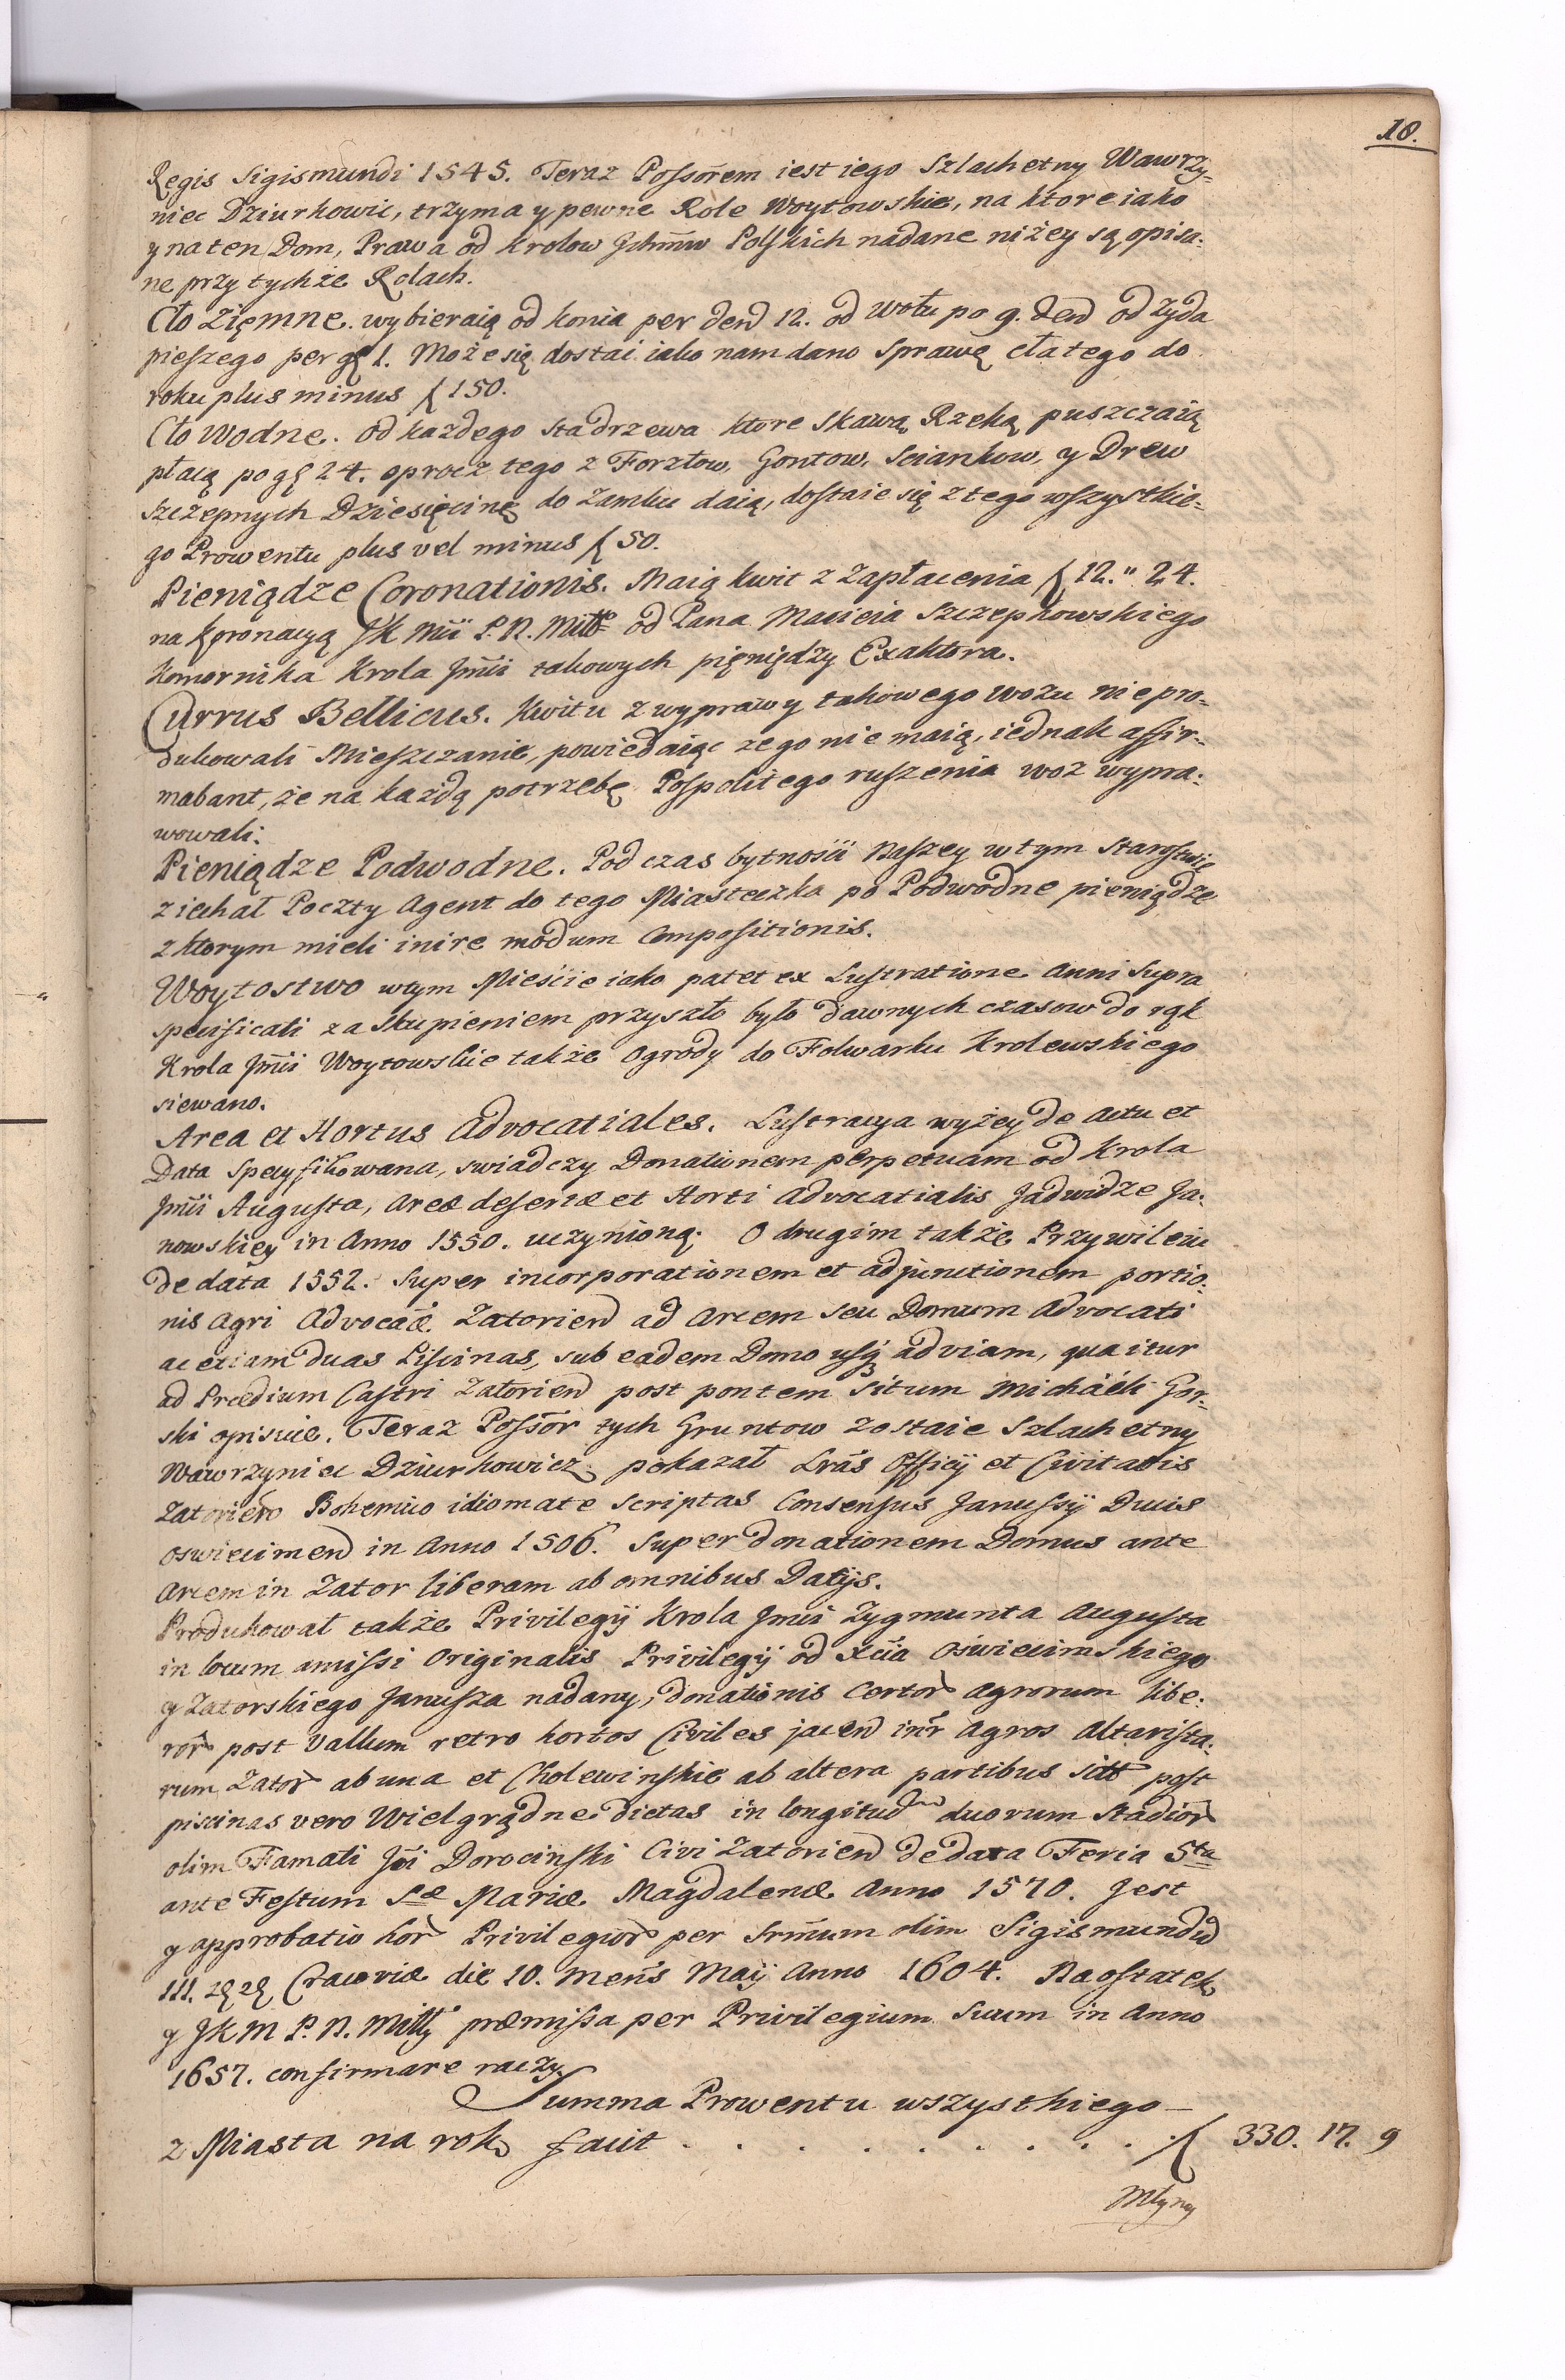 18.
Regis Sigismundi 1545. Teraz Possorem iest iego Szlachetny Wawrzy-
niec Dziurkowic, trzyma y pewne Role Woytowskie, na ktore iako
y na ten Dom, Prawa od Krolow Ichmw Polskich nadane niżey są opisa-
ne przy tychże Rolach.
Cło Ziemne. wybieraią od konia per den 12. od Wołu po 9. den od Zyda
pieszego per gr 1. Może się dostai iako nam dano Sprawę cła tego do
roku plus minus f 150.
Cło Wodne. Od każdego sta drzewa ktore Skawą Rzeką puszczaią
płacą po gr 24. oprocz tego z Forztow, Gontow, Sciankow, y Drew
szczepnych Dziesięcinę do Zamku daią, dostaie się z tego wszystkie-
go Prowentu plus vel minus f 50.
Pieniądze Coronationis. Maią kwit z Zapłacenia f 12." 24.
na Koronacyą JK Mci P. N. Miłł. od Pana Macieia Szczepkowskiego
Komornika Krola Jmci takowych pieniędzy Exaktora.
Currus Bellicus. Kwitu z wyprawy takowego wozu niepro-
dukowali Mieszczanie, powiedaiąc ze go nie maią, iednak affir-
mabant, że na każdą potrzebę Pospolitego ruszenia woz wypra-
wowali.
Pieniądze Podwodne. Pod czas bytności Naszey w tym Starostwie
ziechał Poczty Agent do tego Miasteczka po Podwodne pieniądze
z ktorym mieli inire modum Compositionis.
Woytostwo w tym Mieście iako patet ex Lustratione Anni Supra
specificati za Skupieniem przyszło było dawnych czasow do rąk
Krola Jmci Woytowskie także Ogrody do Folwarku Krolewskiego
siewano.
Area et Hortus Advocatiales. Lustracya wyżey de Actu et
Data Specyfikowana, swiadczy Donationem perpetuam od Krola
Jmci Augusta, Areæ desertæ et Horti Advocatialis Jadwidze Ja-
nowskiey in Anno 1550. uczynioną. O drugim także Przywileiu
de data 1552. Super incorporationem et adjunctionem portio-
nis Agri Advocaæ. Zatorien ad Arcem seu Domum Advocati
ac etiam duas Piscinas, sub eadem Domo usq ad viam, qua itur
ad Prædium Castri Zatorien post pontem Situm Michäeli Gor-
ski opisuie. Teraz Possor tych Gruntow zostaie Szlachetny
Wawrzyniec Dziurkowicz. pokazał Lras Officij et Civitatis
Zatorien Bohemico idiomate scriptas Consensus Janussij Ducis
Oswiecimen in Anno 1506. Super donationem Domus ante
Arcem in Zator liberam ab omnibus Datijs.
Produkował także Privilegij Krola Jmci Zygmunta Augusta
in locum amissi Originalis Privilegij od Xcia Oświecimskiego
y Zatorskiego Janusza nadany, donationis Certor agrorum libe-
ror post Vallum retro hortos Civiles jacen intr Agros Altarista-
rum Zator ab una et Cholewinskie ab altera partibus sitt post
piscinas vero Wielgrądne dictas in longitud duorum Stadior
olim Famati Joi Dorocinski Civi Zatorien de data Feria 5ta
ante Festum Sæ Mariæ Magdalenæ Anno 1570. Jest
y approbatio hor Privilegior per Srmum olim Sigismundu
III. Cracoviæ die 10. Mens Maij Anno 1604. Naostatek
y JKM P. N. Miłły præmissa per Privilegium Suum in Anno
1657. confirmare raczy.
Summa Prowentu wszystkiego
z Miasta na rok facit . . . . . . . . . f 330. 17. 9
Młyny